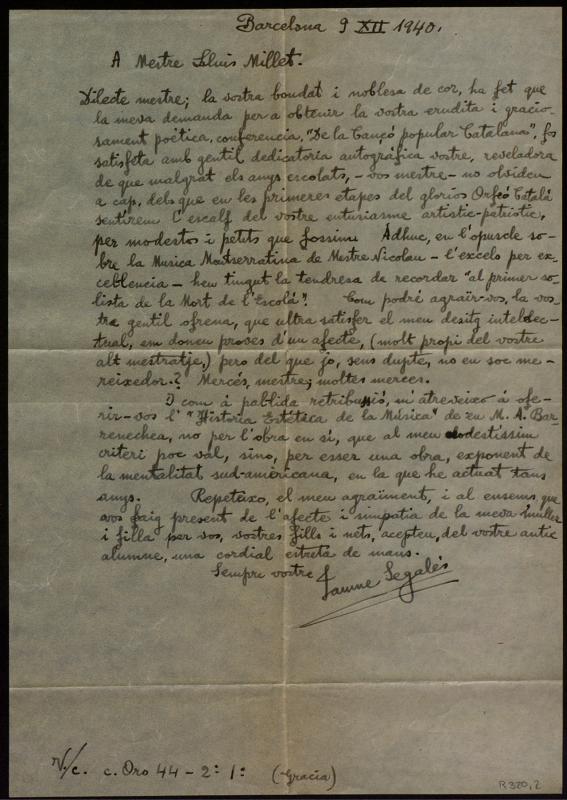 Barcelona 9 XII 1940.
A Mestre Lluis Millet.
Dilecte mestre; la vostra bondat i noblesa de cor, ha fet que
la meva demanda per a obtenir la vostra erudita i gracio-
sament poètica, conferencia, "De la Cançó popular Catalana", fos
satisfeta amb gentil dedicatoria autogràfica vostre, reveladora
de que malgrat els anys escolats, - vos mestre - no olvideu
a cap, dels que en les primeres etapes del glorios Orfeó Català
sentirem l'escalf del vostre entusiasme artistic-patriotic,
per modestos i petits que fossim. Àdhuc, en l'opuscle so-
bre la Musica Montserratina de Mestre Nicolau - l'excels per ex-
cel·lencia - heu tingut la tendresa de recordar "al primer so-
lista de la Mort de l'Escolà". Com podré agrair-vos, la vos-
tra gentil ofrena, que ultra satisfer el meu desitg intel·lec-
tual, em doneu proves d'un afecte, (molt propi del vostre
alt mestratje,) pero del que jo, sens dupte, no en soc me-
reixedor.? Mercés, mestre; moltes merces.
I com á pal·lida retribució, m'atreveixo á ofe-
rir-vos l' "Historia Estética de la Música" de
M. A. Bar-
renechea, no per l'obra en sí, que al meu modestissim
criteri poc val, sino, per esser una obra, exponent de
la mentalitat sud-americana, en la que he actuat tans
anys. Repeteixo, el meu agraïment, i al ensems que
vos faig present de l'afecte i simpatia de la meva muller
i filla per vos, vostres fills i nets, accepteu, del vostre antic
alumne, una cordial estreta de mans.
Sempre vostre
Jaume Segalés
N/c. c. Oro 44 - 2º 1º (Gracia)
R 320, 2